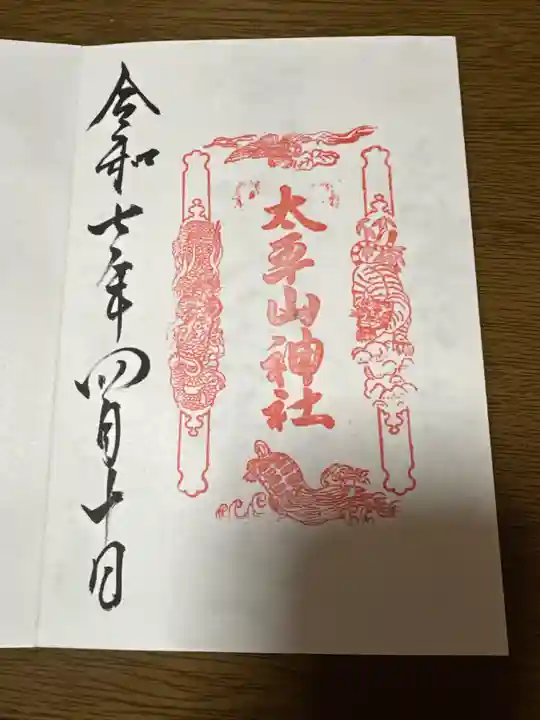 太平山神社
令和七年四月十日